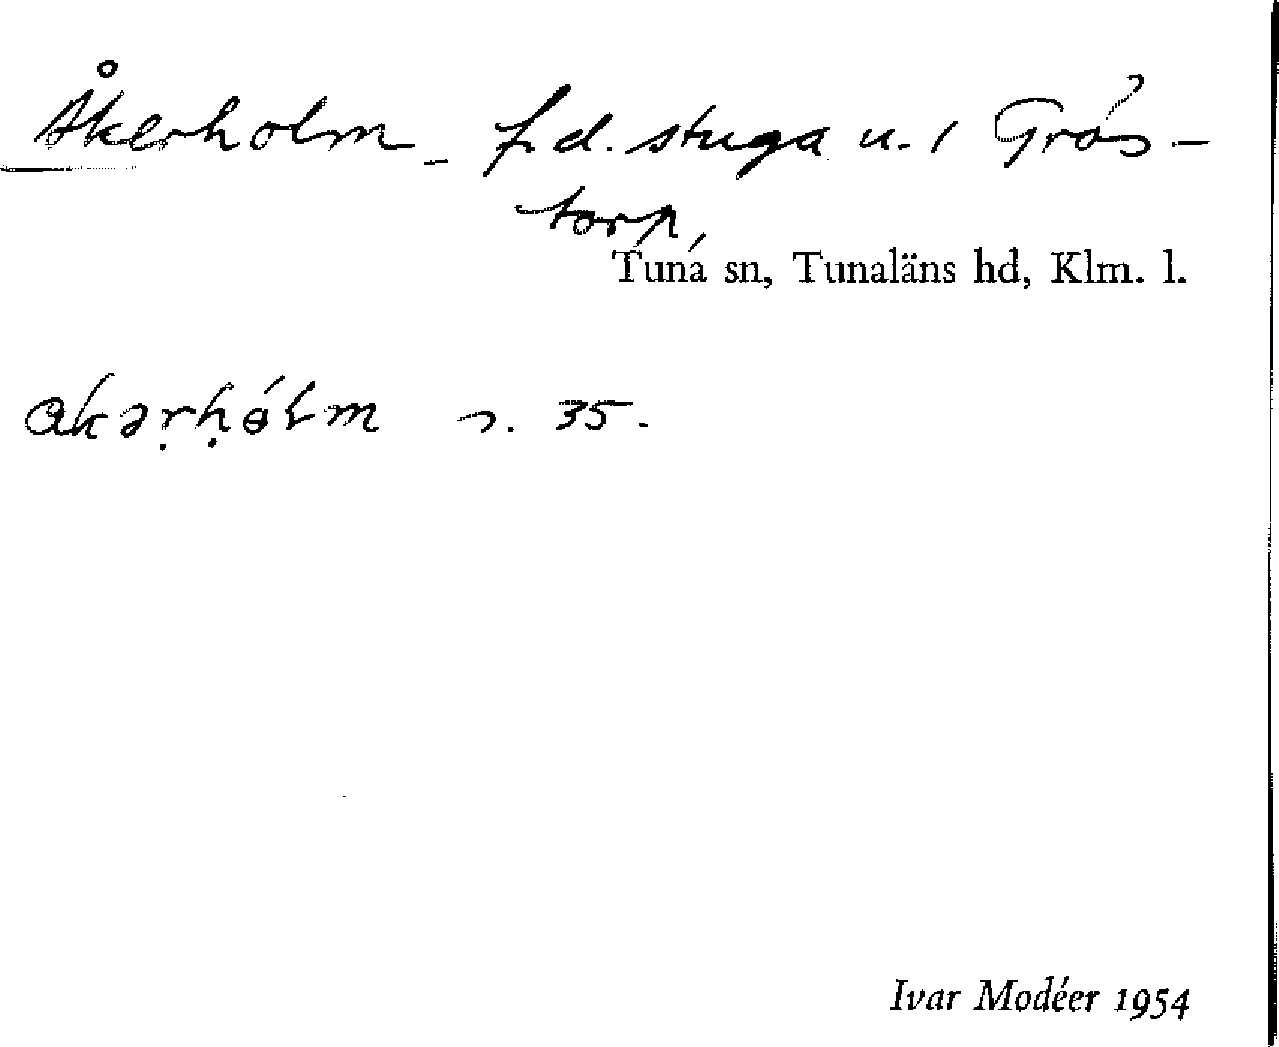 Åkerholm f.d. stuga u. 1 Grås-
torp,
Tuna sn, Tunaläns hd, Klm. l.
s. 35.
Ivar Modéer 1954